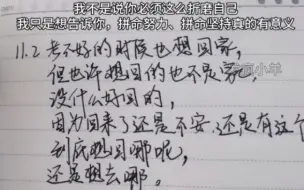 我不是说你必须这么折磨自己
我只是想告诉你，拼命努力、拼命坚持真的有意义
11.2 考不好的时候也想回家，
但也许想回的也不是家，
没什么好回的，
因为回来了还是不安，还是有这个
到底想回哪呢，
还是想去哪。